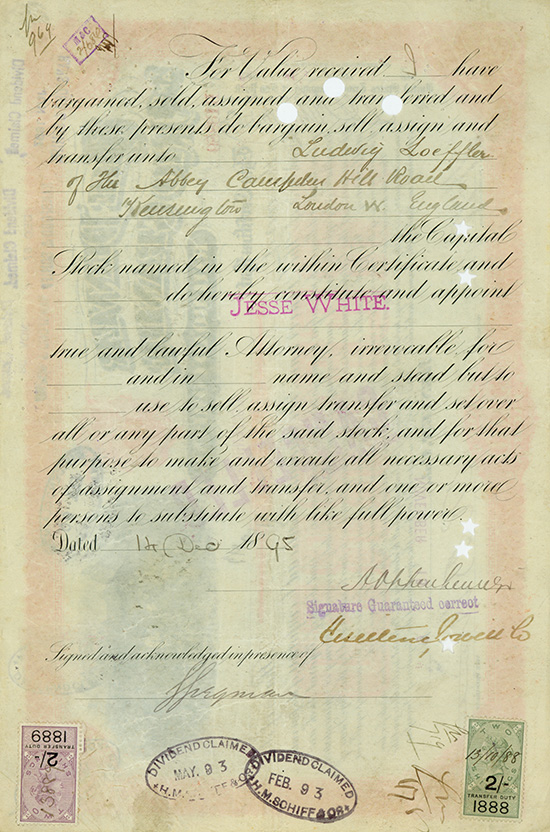 969
For Value received I have
bargained, sold, assigned and transferred and
by these presents do bargain, sell assign and
transfer unto Ludwig Loeffler
of The Abbey Campden Hill Road
Kensington London W. England
the Capital
Stock named in the within Certificate and
do hereby constitute and appoint
JESSE WHITE.
true and lawful Attorney, irrevocable for
and in name and stead but to
use to sell, assign transfer and set over
all or any part of the said stock, and for that
purpose to make and execute all necessary acts
of assignment and transfer, and one or more
persons to substitute with like full power.
Dated 14 Dec 1895
Signature Guaranteed correct
Signed and acknowledged in presence of
1889
TRANSFER DUTY
2/-
DIVIDEND CLAIMED
MAY. 93
DIVIDEND CLAIMED
FEB. 93
H.M. SCHIFF & CO.
TWO
13/10/88
2/-
TRANSFER DUTY
1888